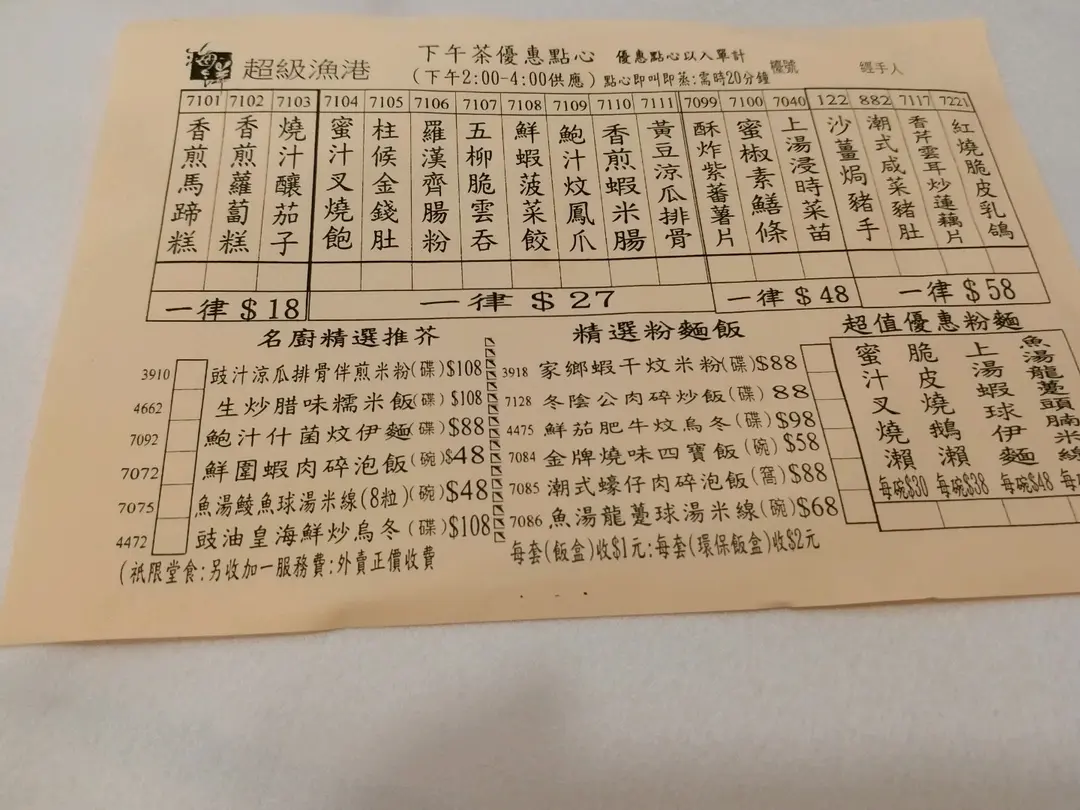 海洋 超級漁港
下午茶優惠點心 優惠點心以入單計
(下午2:00-4:00供應) 點心即叫即蒸:需時20分鐘 檯號 經手人
7101 7102 7103 7104 7105 7106 7107 7108 7109 7110 7111 7099 7100 7040 122 882 7117 7221
香煎馬蹄糕
香煎蘿蔔糕
燒汁釀茄子
蜜汁叉燒飽
柱候金錢肚
羅漢齊腸粉
五柳脆雲吞
鮮蝦菠菜餃
鮑汁炆鳳爪
香煎蝦米腸
黃豆涼瓜排骨
酥炸紫蕃薯片
蜜椒素鱔條
上湯浸時菜苗
沙薑焗豬手
潮式咸菜豬肚
香芹雲耳炒蓮藕片
紅燒脆皮乳鴿
一律$18 一律$27 一律$48 一律$58
名廚精選推芥
3910 豉汁涼瓜排骨伴煎米粉(碟)$108
4662 生炒腊味糯米飯(碟)$108
7092 鮑汁什菌炆伊麵(碟)$88
7072 鮮圍蝦肉碎泡飯(碗)$48
7075 魚湯鯪魚球湯米線(8粒)(碗)$48
4472 豉油皇海鮮炒烏冬(碟)$108
(祇限堂食:另收加一服務費:外賣正價收費
精選粉麵飯
3918 家鄉蝦干炆米粉(碟)$88
7128 冬陰公肉碎炒飯(碟) 88
4475 鮮茄肥牛炆烏冬(碟)$98
7084 金牌燒味四寶飯(碗)$58
7085 潮式蠔仔肉碎泡飯(窩)$88
7086 魚湯龍躉球湯米線(碗)$68
每套(飯盒)收$1元:每套(環保飯盒)收$2元
超值優惠粉麵
蜜汁叉燒瀨 每碗$30
脆皮燒鵝瀨 每碗$38
上湯蝦球伊麵 每碗$48
魚湯龍躉頭腩米線 每